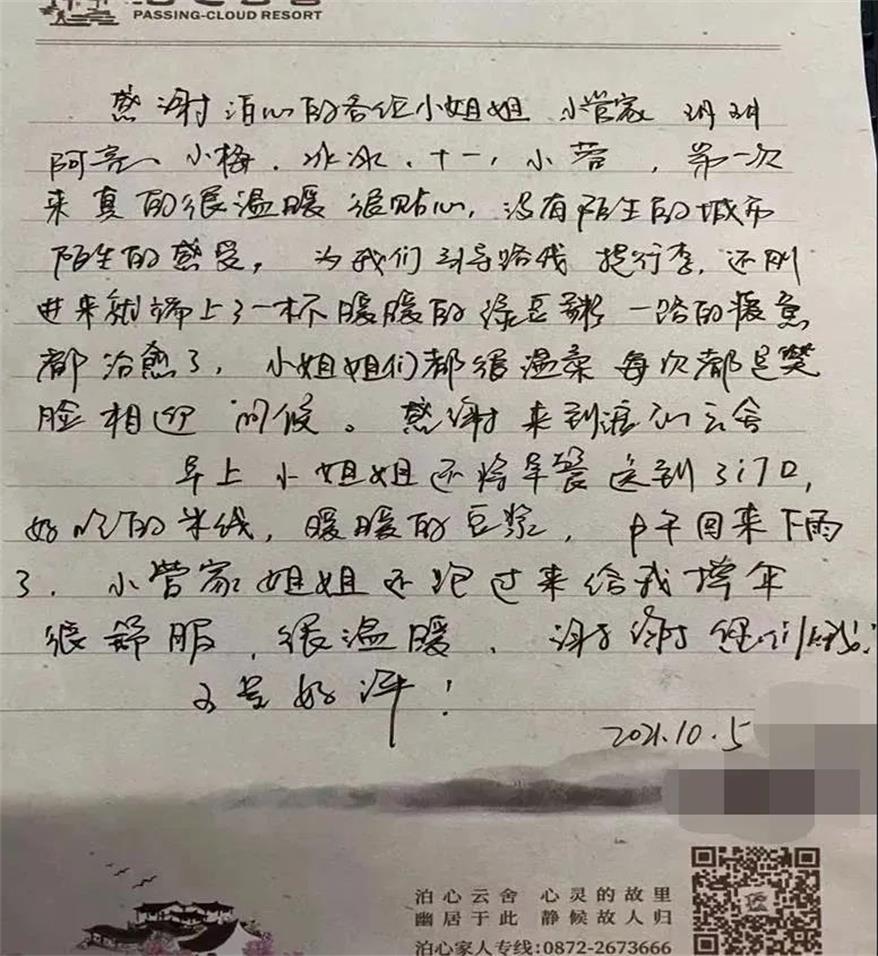 PASSING-CLOUD RESORT
感谢泊心的各位小姐姐 小管家 玥玥
阿亮、小梅、冰冰、十一、小蓉，第一次
来真的很温暖很贴心，没有陌生的城市
陌生的感受，为我们引导路线 提行李，还刚
进来就端上了一杯暖暖的绿豆粥 一路的疲惫
都治愈了，小姐姐们都很温柔 每次都是笑
脸相迎 问候。感谢 来到 云舍
早上小姐姐还将早餐送到门口，
好吃的米线，暖暖的豆浆，中午回来下雨
了．小管家姐姐还跑过来给我撑伞
很舒服，很温暖，谢谢
好评！
2021.10.5
泊心云舍 心灵的故里
幽居于此 静候故人归
泊心家人专线:0872-2673666